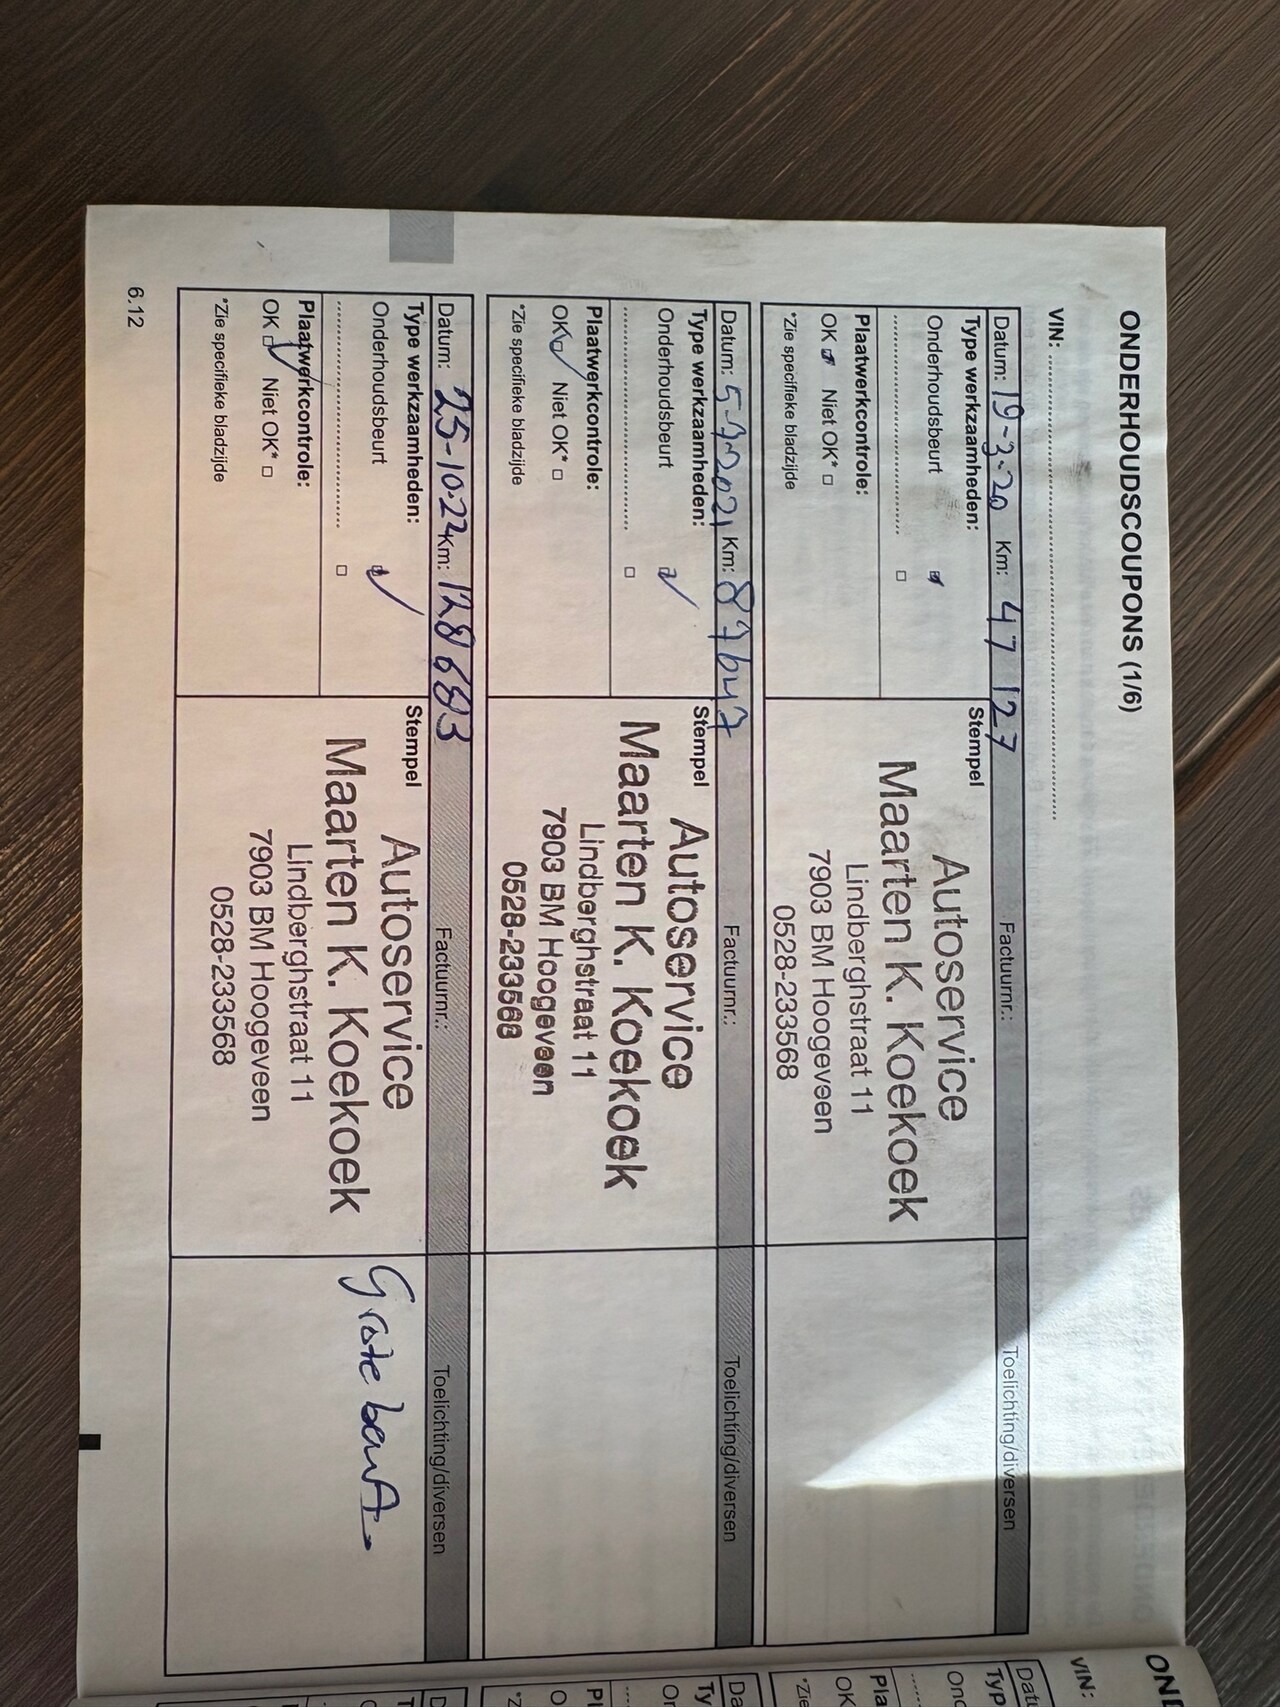 ONDERHOUDSCOUPONS (1/6)
VIN: ............................................................
Datum: 19-3-20 Km: 47 127 Factuurnr.: Toelichting/diversen
Type werkzaamheden:
Onderhoudsbeurt ☑
........................................ □
Plaatwerkcontrole:
OK ☑ Niet OK* □
*Zie specifieke bladzijde
Stempel
Autoservice
Maarten K. Koekoek
Lindberghstraat 11
7903 BM Hoogeveen
0528-233568
Datum: 5-7-2021 Km: 87647 Factuurnr.: Toelichting/diversen
Type werkzaamheden:
Onderhoudsbeurt ☑
........................................ □
Plaatwerkcontrole:
OK ☑ Niet OK* □
*Zie specifieke bladzijde
Stempel
Autoservice
Maarten K. Koekoek
Lindberghstraat 11
7903 BM Hoogeveen
0528-233568
Datum: 25-10-22 Km: 128683 Factuurnr.: Toelichting/diversen
Type werkzaamheden:
Onderhoudsbeurt ☑
........................................ □
Plaatwerkcontrole:
OK ☑ Niet OK* □
*Zie specifieke bladzijde
Stempel
Autoservice
Maarten K. Koekoek
Lindberghstraat 11
7903 BM Hoogeveen
0528-233568
Grote beurt
6.12
VIN: